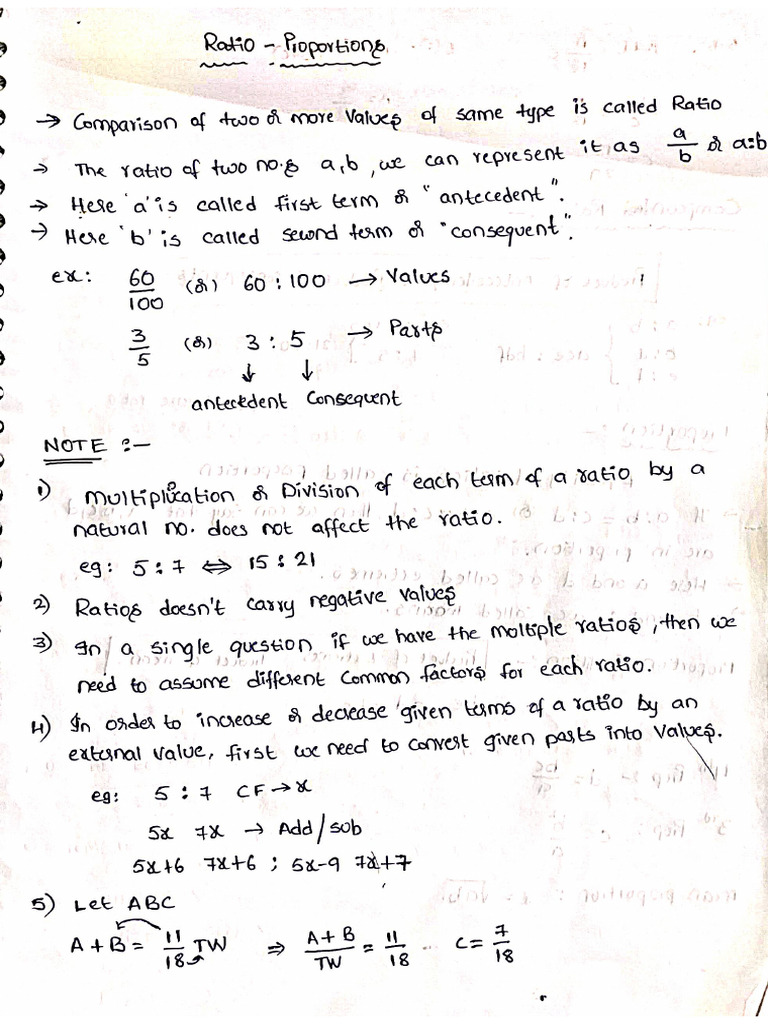 Ratio - Proportions
→ Comparison of two or more values of same type is called Ratio
→ The ratio of two no.s a,b, we can represent it as a/b or a:b
→ Here 'a' is called first term or "antecedent".
→ Here 'b' is called second term or "consequent".
ex: 60/100 (or) 60 : 100 → Values
3/5 (or) 3 : 5 → Parts
↓ ↓
antecedent Consequent
NOTE :-
1) Multiplication or Division of each term of a ratio by a
natural no. does not affect the ratio.
eg: 5 : 7 ⇔ 15 : 21
2) Ratios doesn't carry negative values
3) In a single question if we have the moltiple ratios, then we
need to assume different Common factors for each ratio.
4) In order to increase or decrease given terms of a ratio by an
external value, first we need to convert given parts into Values.
eg: 5 : 7 CF → x
5x 7x → Add/sub
5x+6 7x+6 ; 5x-9 7x+7
5) Let ABC
A + B = 11/18 TW ⇒ A + B/TW = 11/18 C = 7/18